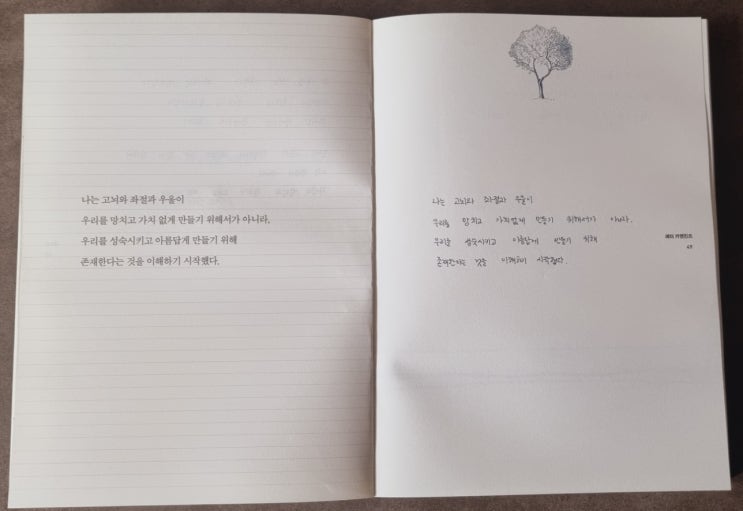 나는 고뇌와 좌절과 우울이
우리를 망치고 가치 없게 만들기 위해서가 아니라,
우리를 성숙시키고 아름답게 만들기 위해
존재한다는 것을 이해하기 시작했다.
나는 고뇌와 좌절과 우울이
우리를 망치고 가치없게 만들기 위해서가 아니라.
우리를 성숙시키고 아름답게 만들기 위해
존재한다는 것을 이해하기 시작했다.
페터 카멘친트
49